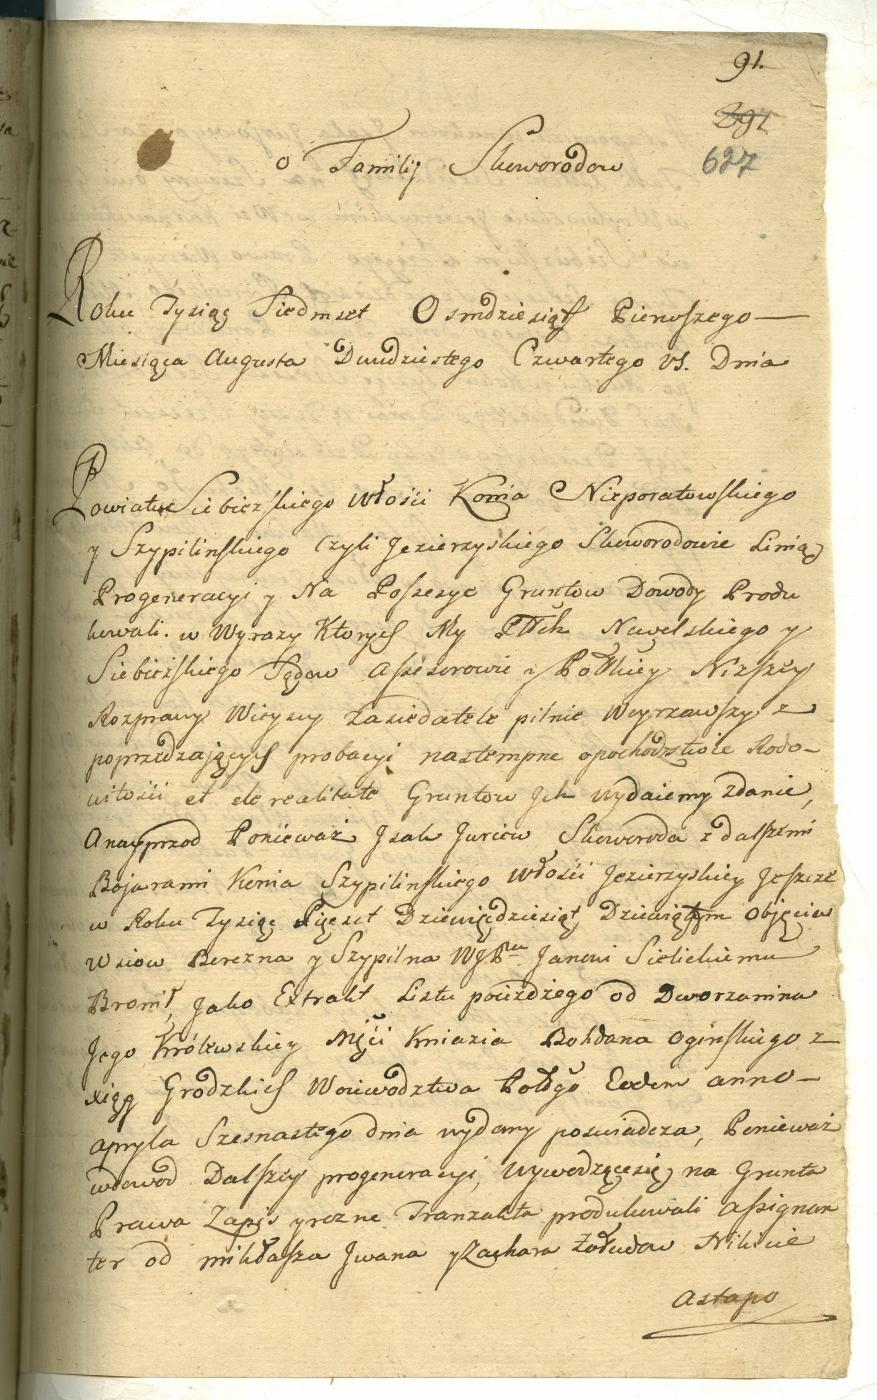 91.
297
627
o Familij Skoworodow
Roku Tysiąc Siedmset Osmdziesiąt Pierwszego
Miesiąca Augusta Dwudziestego Czwartego vs. Dnia
Powiatu Siebiezskiego włości Konia Nieporatowskiego
y Szypilinskiego Czyli Jezierzyskiego Skoworodowie Linią
Progeneracyi y Na Possesye Gruntow Dowody Produ
kowali. w Wyrazy Ktorych My Newelskiego y
Siebiezskiego Sądow Assesorowie y Niższey
Rozprawy Wieyscy Zasiedatele pilnie Weyrzawszy z
poprzedzaiących probacyi nastempne o pochodzeniu Rodo-
witości et de realitate Gruntow Jch wydaiemy Zdanie,
A nayprzod Ponieważ Jsak Juriew Skoworoda z dalszemi
Bojarami Konia Szypilinskiego włości Jezierzyskiey Jeszcze
w Roku Tysiąc Pięcset Dziewięcdziesiąt Dziewiątym Objęciu
Wsiow Berezna y Szypilna Janowi Sielickiemu
Bronił, Jako Extrakt Listu od Dworzanina
Jego Krolewskiey Mści Kniazia Bohdana Oginskiego z
xiąg Grodzkich Woiewodztwa Połłgo Eodem anno
apryla Szesnastego dnia wydany poswiadcza, Ponieważ
wdowod Dalszey progeneracyi, wywodzącesię na Grunta
Prawa Zapis y rozne Tranzakta produkowali assignan
ter od mikłasza Jwana y Zachara Nikicie
Astapo